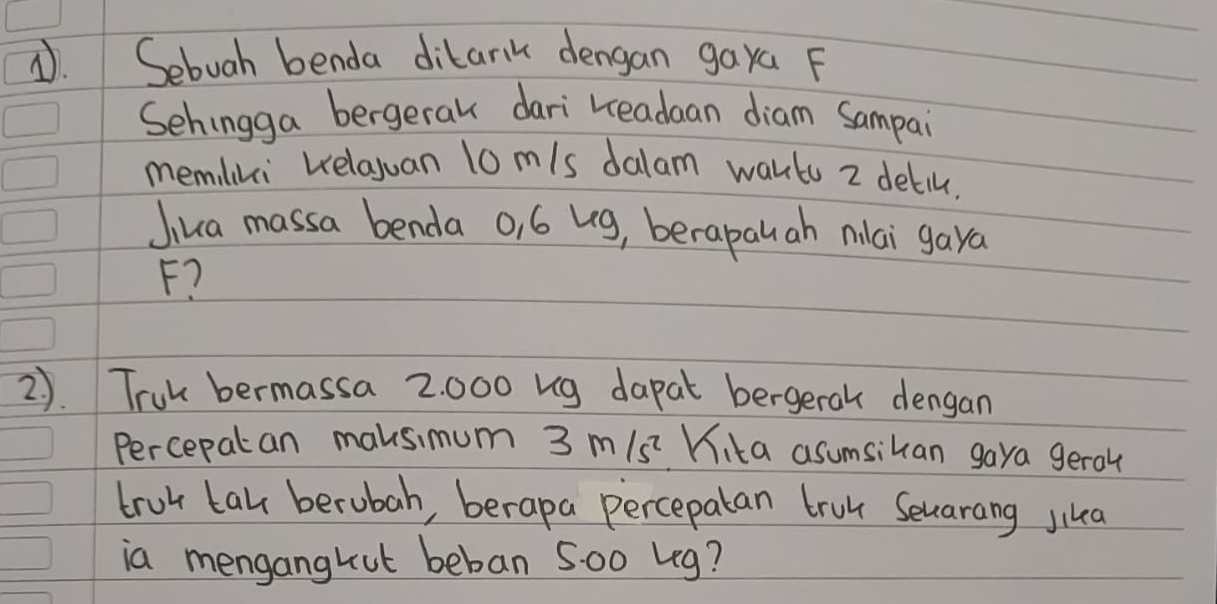 1). Sebuah benda ditarik dengan gaya F
Sehingga bergerak dari keadaan diam Sampai
memiliki kelajuan 10 m/s dalam waktu 2 detik.
Jika massa benda 0,6 kg, berapakah nilai gaya
F?
2). Truk bermassa 2.000 kg dapat bergerak dengan
Percepatan maksimum 3 m/s². Kita asumsikan gaya gerak
truk tak berubah, berapa percepatan truk Sekarang jika
ia mengangkut beban 5.00 kg?